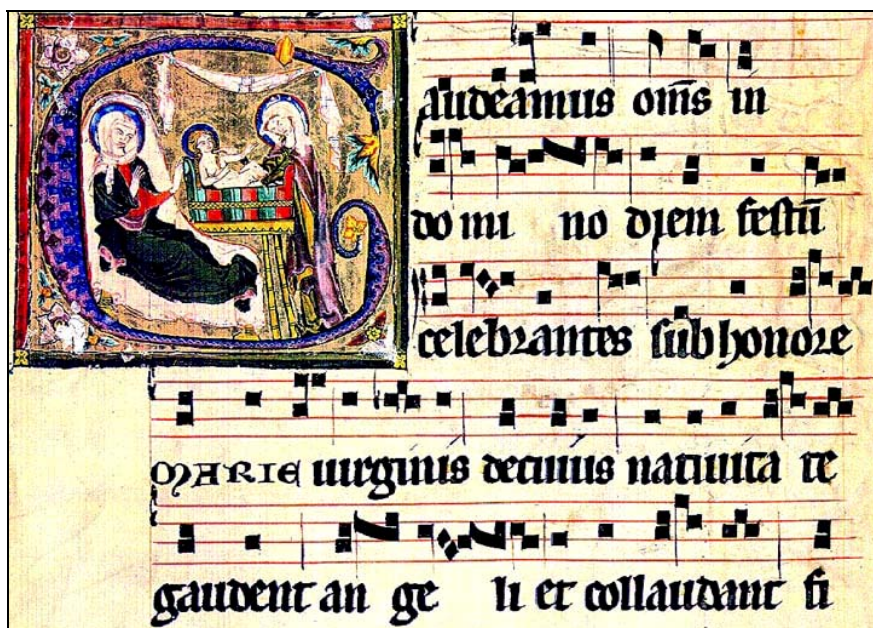 Gaudeamus om̅s in
do mi no diem festu̅
celebrantes sub honore
MARIE uirginis de cuius natiuita te
gaudent an ge li et collaudant fi